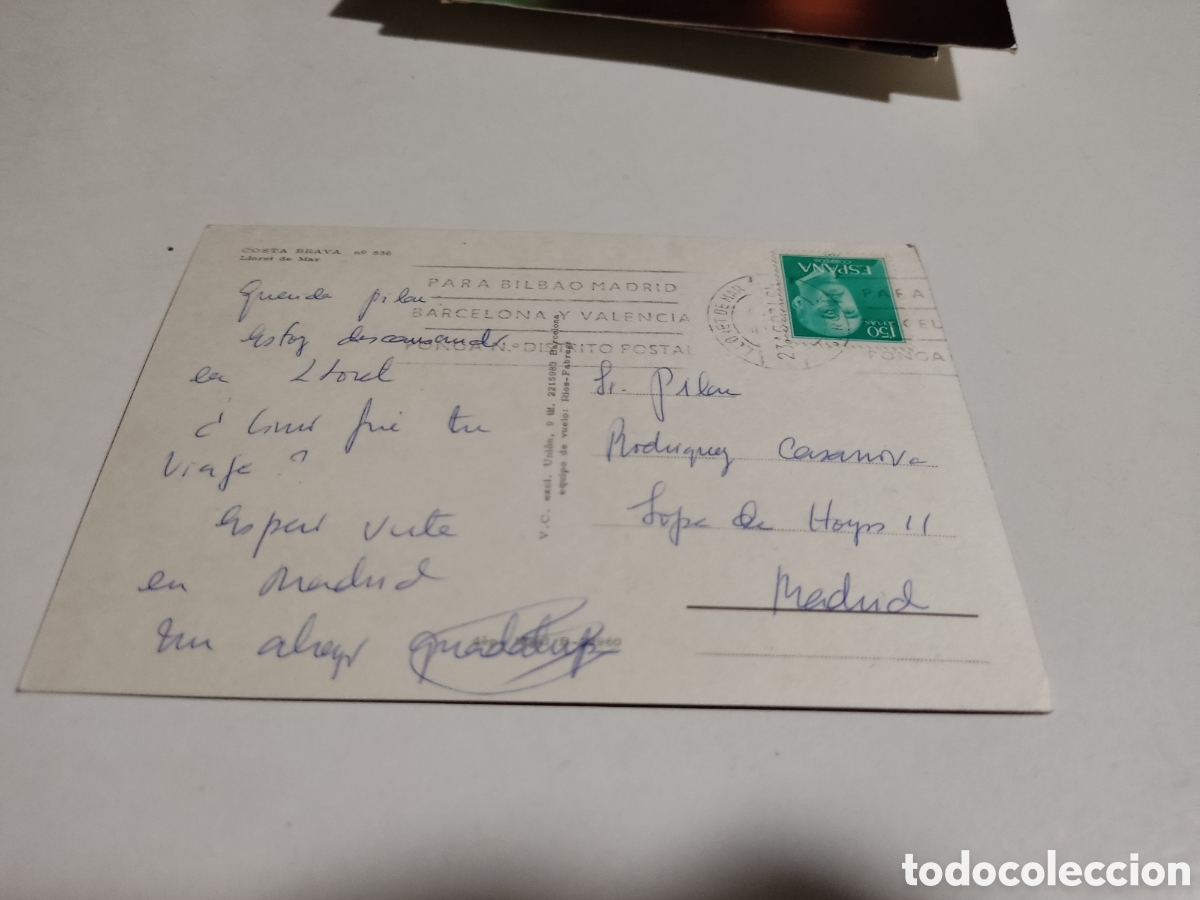 COSTA BRAVA nº 836
Lloret de Mar
PARA BILBAO MADRID
BARCELONA Y VALENCIA
PONGA N.º DISTRITO POSTAL
LLORET DE MAR
ESPAÑA
CORREOS
1'50
PTAS
PARA
PONGA
Querida pilar
Estoy descansando
en Lloret
¿ Como fue tu
viaje ?
Espero verte
en Madrid
Un abrazo
V.C. excl. Unión, 9 Tel. 2215983 Barcelona
equipo de vuelo: Ríos-Fabregas
Sr. Pilar
Rodriguez Casanova
Lope de Hoyos 11
Madrid
todocoleccion